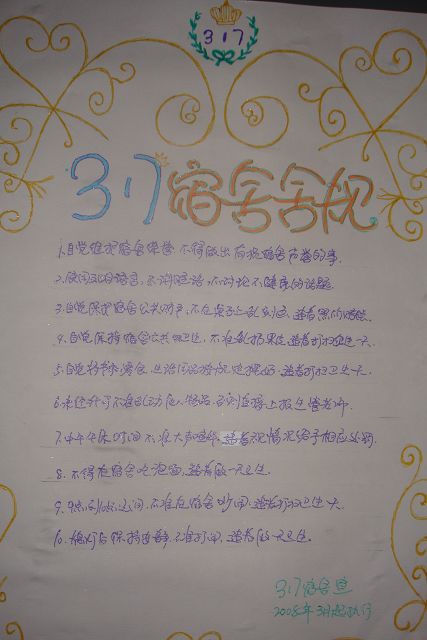 317
317宿舍舍规
1.自觉维护宿舍荣誉,不得做出有损宿舍声誉的事.
2.使用文明语言,不讲脏话,不讨论不健康的话题.
3.自觉保护宿舍公共财产,不在桌子上乱刻画,违者照价赔偿.
4.自觉保持宿舍公共卫生,不准乱扔果皮,违者打扫卫生一天.
5.自觉将衣物,生活用品摆放整理好,违者打扫卫生一天.
6.未经许可不准乱动他人物品,否则直接上报生管老师.
7.中午午休时间不准大声喧哗,违者视情况给予相应处罚.
8.不得在宿舍吃泡面,违者做一天卫生
9.不准在宿舍吵闹,违者打扫卫生一天
10.熄灯后保持安静,不准打闹,违者做一天卫生.
317宿舍宣
2008年3月起执行